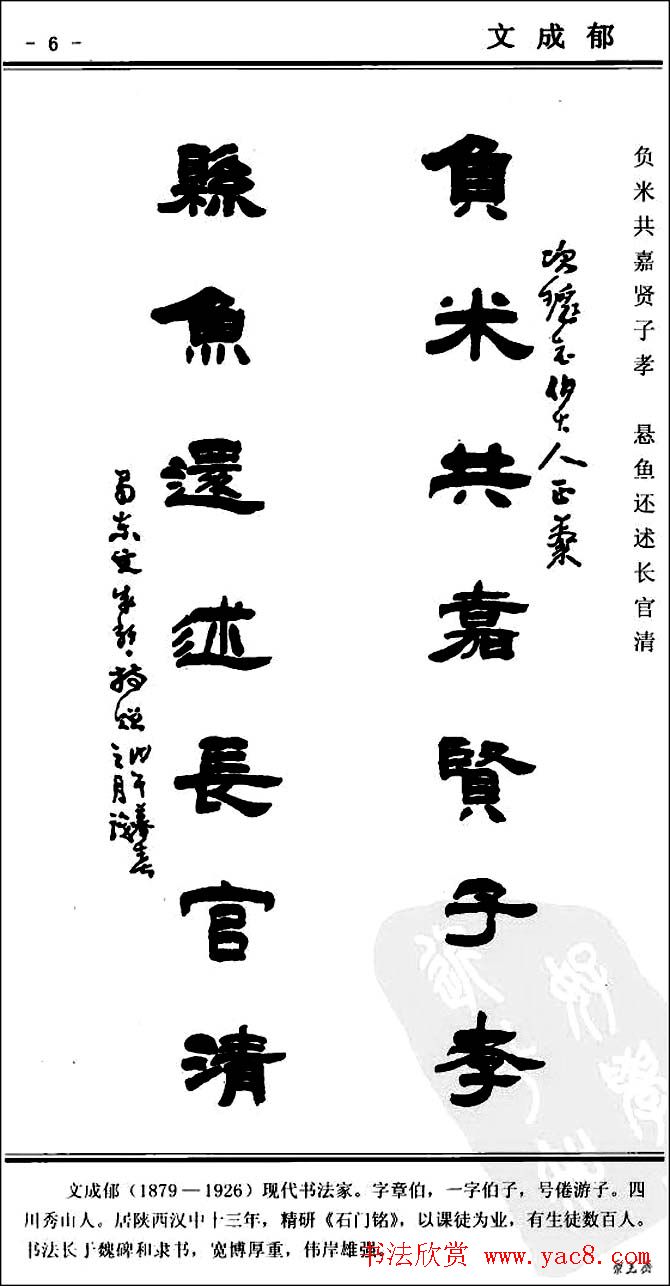 - 6 -
文成郁
负米共嘉贤子孝 悬鱼还述长官清
負米共嘉賢子孝
縣魚還述長官清
文成郁（1879—1926）现代书法家。字章伯，一字伯子，号倦游子。四
川秀山人。居陕西汉中十三年，精研《石门铭》，以课徒为业，有生徒数百人。
书法长于魏碑和隶书，宽博厚重，伟岸雄强。
书法欣赏 www.yac8.com